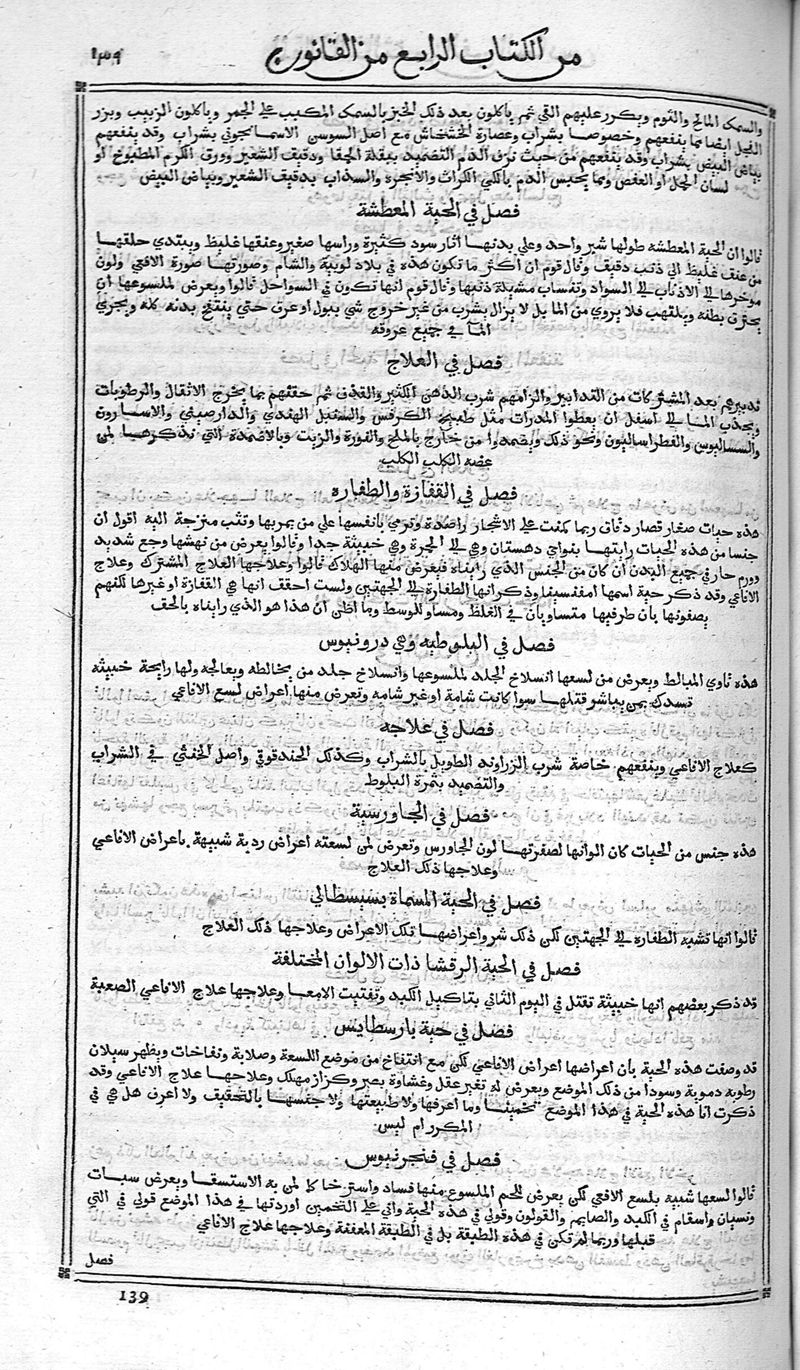 من الكتاب الرابع من القانون ج
١٣٩
والسمك المالح والثوم ويكرر عليهم القي ثم ياكلون بعد ذلك الخبز بالسمك المكبب على الجمر وياكلون الزبيب وبزر
الفجل ايضا مما ينفعهم وخصوصا بشراب وعصارة الخشخاش مع اصل السوسن الاسمانجوني بشراب وقد ينفعهم
بياض البيض بشراب وقد ينفعهم من حيث نزف الدم التضميد ببقلة الحمقا ودقيق الشعير وورق الكرم المطبوخ او
لسان الحمل او العفص ومما يحبس الدم بالكي الكراث والانجره والسذاب بدقيق الشعير وبياض البيض
فصل في الحية المعطشة
قالوا ان الحية المعطشه طولها شبر واحد وعلى بدنها اثار سود كثيرة وراسها صغير وعنقها غليظ ويبتدي حلقها
من عنف غليظ الى ذنب دقيق وقال قوم ان اكثر ما تكون هذه في بلاد لوبية والشام وصورتها صورة الافعي ولون
موخرها الى الاذناب الى السواد وتنساب مشيلة ذنبها وقال قوم انها تكون في السواحل قالوا ويعرض لملسوعها ان
يحترق بطنه ويلتهب فلا يروي من الما بل لا يزال يشرب من غير خروج شي ببول او عرق حتي ينتفخ بدنه كله ويجري
الما في جميع عروقه
فصل في العلاج
تدبيرهم بعد المشتركات من التدابير والزامهم شرب الدهن الكثير والقذف ثم حقنهم بما يخرج الاثقال والرطوبات
ويجذب الما الى اسفل ان يعطوا المدرات مثل طبيخ الكرفس والسنبل الهندي والدارصيني والاسارون
والسساليوس والفطراساليون ونحو ذلك ويضمدوا من خارج بالملح والنورة والزيت وبالاضمدة التي نذكرها لمن
عضه الكلب الكلب
فصل في القفازة والطفاره
هذه حيات صغار قصار دقاق ربما كمنت على الاشجار راصدة وترمي بانفسها علي من يمر بها وتثب منزجة اليه اقول ان
جنسا من هذه الحيات رايتها بنواي دهستان وهي الى الحمرة وهي خبيثة جدا وقالوا يعرض من نهشها وجع شديد
وورم حار في جميع البدن ان كان من الجنس الذي رايناه فيعرض منها الهلاك قالوا وعلاجها العلاج المشترك وعلاج
الافاعي وقد ذكر حية اسمها امفنسينا وذكر انها الطفارة الى الجهتين ولست احقف انها هي القفازة او غيرها لكنهم
يصفونها بان طرفيها متساويان في الغلظ ومساو للوسط وما اظن ان هذا هو الذي رايناه بالحف
فصل في البلوطيه وهي درونيوس
هذه تاوي المبالط ويعرض من لسعها انسلاخ الجلد لملسوعها وانسلاخ جلد من يخالطه ويعالجه ولها رايحة خبيثه
تسدك بمن يباشر قتلها سوا كانت شامة او غير شامه وتعرض منها اعراض لسع الافاعي
فصل في علاجه
كعلاج الافاعي وينفعهم خاصة شرب الزراوند الطويل بالشراب وكذلك الحندقوقي واصل الخنثي في الشراب
والتضميد بثمرة البلوط
فصل في الجاورسية
هذه جنس من الحيات كان الوانها لصفرتها لون الجاورس وتعرض لمن لسعته اعراض ردية شبيهة باعراض الافاعي
وعلاجها ذلك العلاج
فصل في الحية المسماة بسبسطالي
قالوا انها تشبه الطفاره الى الجهتين لكن ذلك شر واعراضها تلك الاعراض وعلاجها ذلك العلاج
فصل في الحية الرقشا ذات الالوان المختلفة
قد ذكر بعضهم انها خبيثة تقتل في اليوم الثاني بتاكيل الكبد وتفتيت الامعا وعلاجها علاج الافاعي الصعبة
فصل في حية بارسطايس
قد وصفت هذه الحية بان اعراضها اعراض الافاعي لكن مع انتفاخ من موضع اللسعة وصلابة ونفاخات ويظهر سيلان
رطوبة دموية وسودا من ذلك الموضع ويعرض له تغير عقل وغشاوة بصر وكزاز مهلك وعلاجها علاج الافاعي وقد
ذكرت انا هذه الحية في هذا الموضع تخمينا وما اعرفها ولا طبيعتها ولا جنسها بالتحقيف ولا اعرف هل هي في
المكرر ام ليس
فصل في فنجرنيوس
قالوا لسعها شبيه بلسع الافعي لكن يعرض للحم الملسوع منها فساد واسترخا كا لمن به الاستسقا ويعرض سبات
ونسيان واسقام في الكبد والصايم والقولون وقولي في هذه الحية واني علي التخمين اوردتها في هذا الموضع قولي في التي
قبلها وربما لم تكن في هذه الطبقة بل في الطبقة المعفنة وعلاجها علاج الافاعي
فصل
139